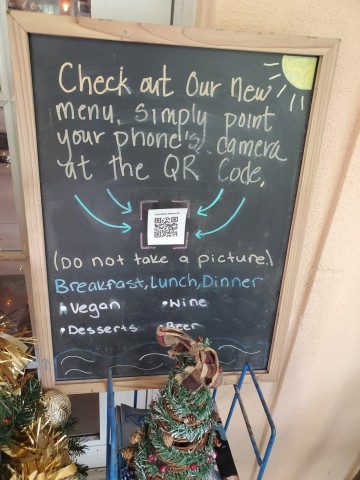 Check out Our new
menu, Simply point
your phone's camera
at the QR Code.
(Do not take a picture!)
Breakfast, Lunch, Dinner
• Vegan • Wine
• Desserts • Beer